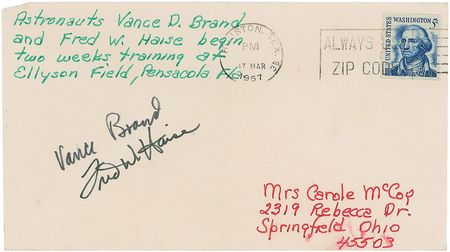 Astronauts Vance D. Brand
and Fred W. Haise begin
two weeks training at
Ellyson Field, Pensacola Fla
TEX.
PM
17 MAR
1967
ALWAYS
ZIP CODE
UNITED STATES
WASHINGTON 5c
Vance Brand
Fred W Haise
Mrs Carole McCoy
2319 Rebecca Dr.
Springfield Ohio
45503